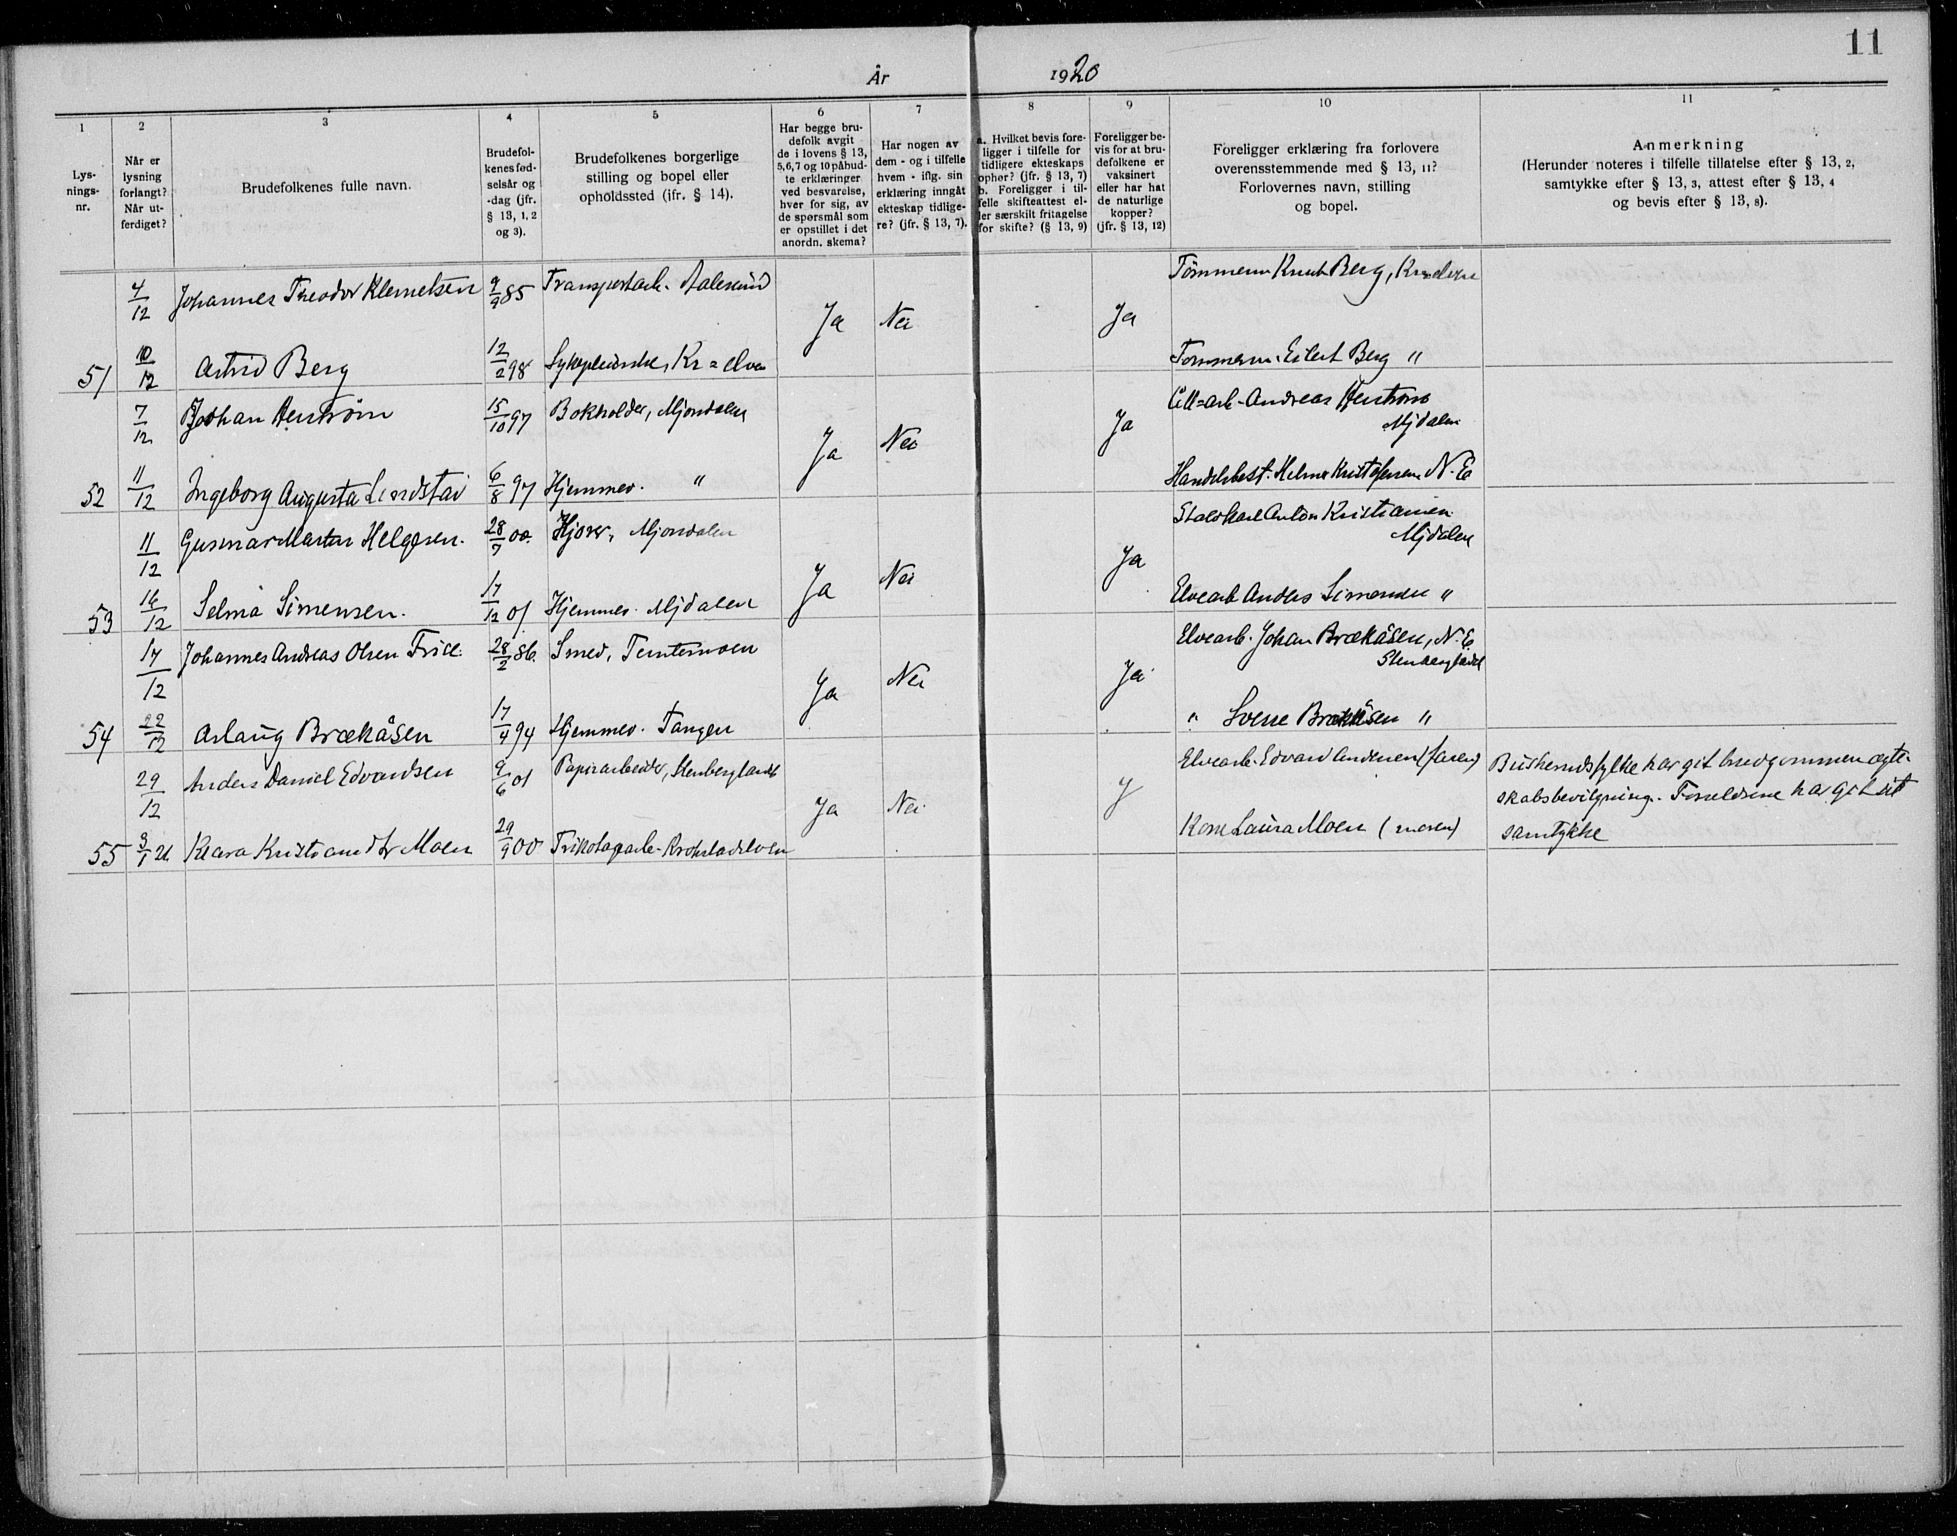 11
År 1920
1 2 3 4 5 6 7 8 9 10 11
Lys-
nings-
nr.
Når er
lysning
forlangt?
Når ut-
ferdiget?
Brudefolkenes fulle navn.
Brudefol-
kenes fød-
selsår og
-dag (jfr.
§ 13, 1, 2
og 3).
Brudefolkenes borgerlige
stilling og bopel eller
opholdssted (jfr. § 14).
Har begge bru-
defolk avgit
de i lovens § 13,
5,6,7 og 10 påbud-
te erklæringer
ved besvarelse,
hver for sig, av
de spørsmål som
er opstillet i det
anordn. skema?
Har nogen av
dem - og i tilfelle
hvem - iflg. sin
erklæring inngått
ekteskap tidlige-
re? (jfr. § 13, 7).
a. Hvilket bevis fore-
ligger i tilfelle for
tidligere ekteskaps
ophør? (jfr. § 13, 7)
b. Foreligger i til-
felle skifteattest el-
ler særskilt fritagelse
for skifte? (§ 13, 9)
Foreligger be-
vis for at bru-
defolkene er
vaksinert
eller har hat
de naturlige
kopper?
(jfr. § 13, 12)
Foreligger erklæring fra forlovere
overensstemmende med § 13, 11?
Forlovernes navn, stilling
og bopel.
Anmerkning
(Herunder noteres i tilfelle tillatelse efter § 13, 2,
samtykke efter § 13, 3, attest efter § 13, 4
og bevis efter § 13, 8).
4/12 Johannes Theodor Klemetsen 9/9 85 Transportarb. Aalesund Tømmerm Knut Berg,
Ja Nei Ja
51 10/12 Astrid Berg 12/2 98 Sykepleierske, Kr=elven Tømmerm. Eilert Berg "
7/12 Johan 15/10 97 Bokholder, Mjøndalen Cell=arb. Andreas
Mjdalen
Ja Nei Ja
52 11/12 Ingeborg Augusta Lindstad 6/8 97 Hjemmev. " Handelsbest. Helmer Kristofersen N. E
11/12 Gusmar Martin Helgesen. 28/7 00. Mjøndalen Anton Kristiansen
Mjdalen
Ja Nei Ja
53 16/12 Selma Simensen. 17/12 01 Hjemmev. Mjdalen Elvearb Anders Simensen "
17/12 Johannes Andreas Olsen 28/2 86. Smed, Temtemoen Elvearb. Johan Brækåsen, N. E.
Stenbergløkk
Ja Nei Ja
54 22/12 Aslaug Brækåsen 17/4 94 Hjemmev. Tangen " Sverre Brækåsen "
29/12 Anders Daniel Edvardsen 9/6 01 Papirarbeider, Elvearb. Edvard Andersen (faren) Buskerudsfylke har git brudgommen egte-
skabsbevilgning. Foreldrene har git sit
Ja Nei J
55 3/1 21 Klara Kristiansdtr Moen 29/9 00 Trikotagearb. Krokstadelven Kone Laura Moen (moren) samtykke